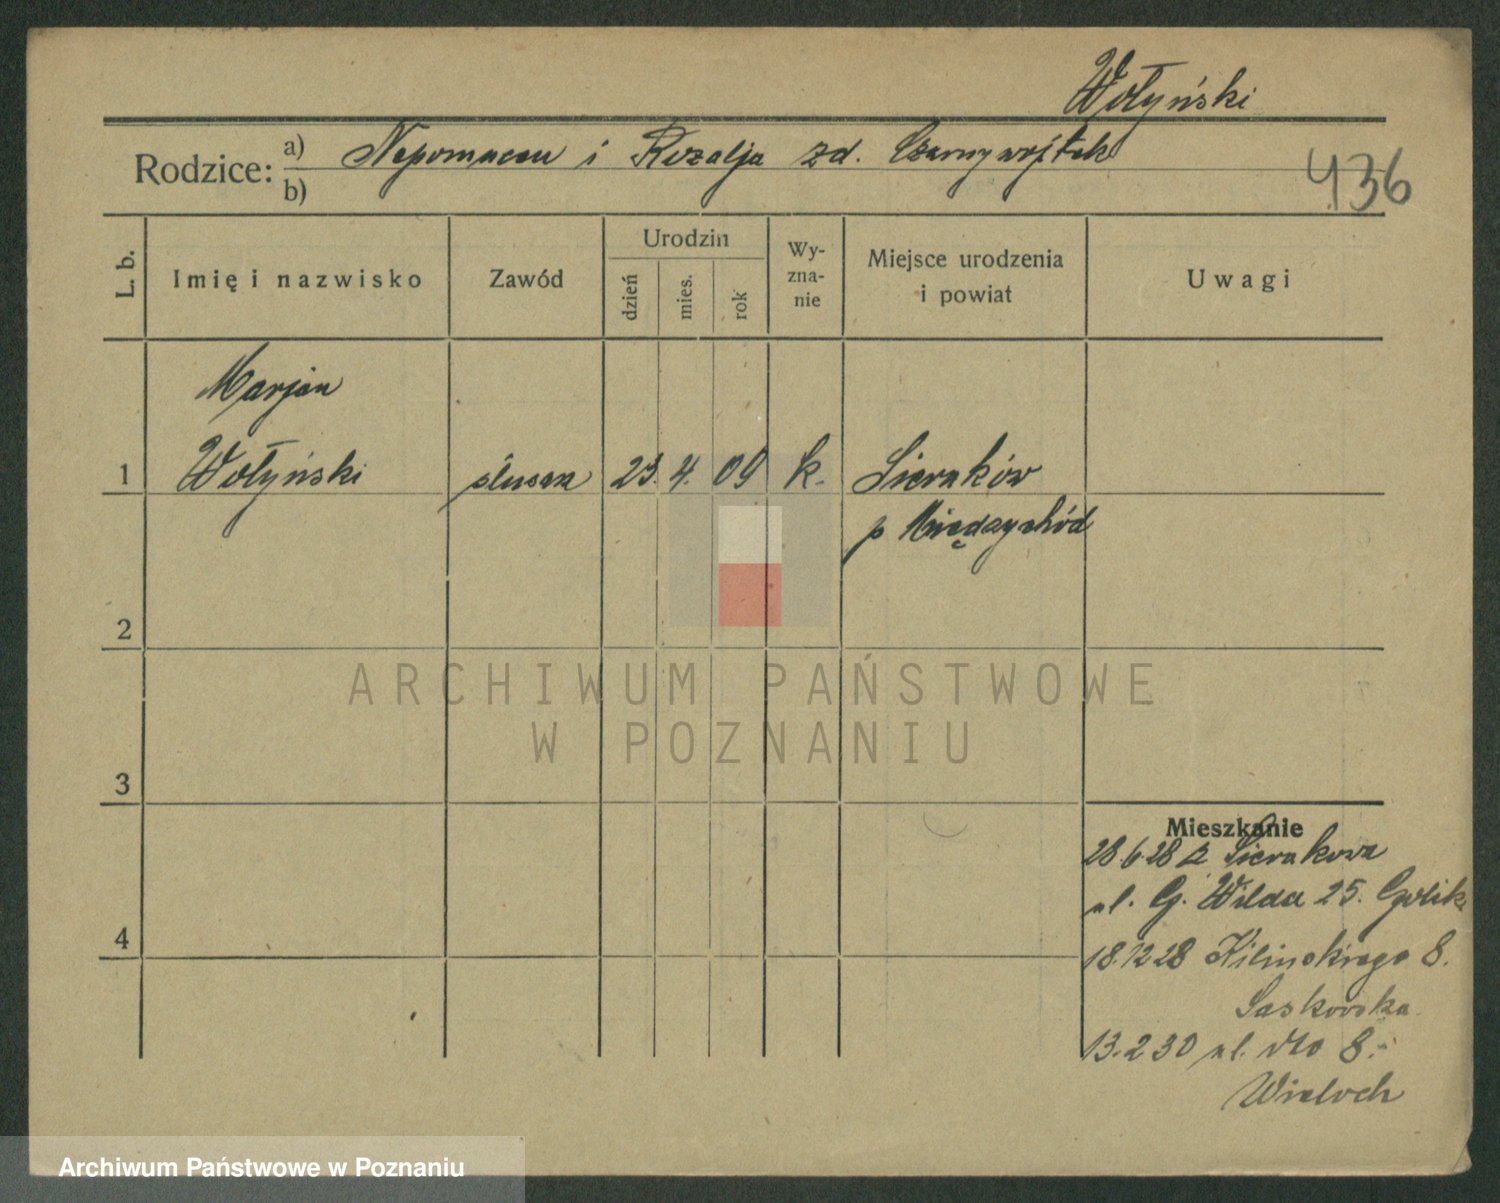 Wołyński
Rodzice: a) Nepomucen i Rozalja zd. Czarnywojtek
b)
436
L. b.
Imię i nazwisko
Zawód
Urodzin
dzień
mies.
rok
Wy-
zna-
nie
Miejsce urodzenia
i powiat
Uwagi
Marjan
1 Wołyński ślusarz 23. 4. 09 k. Sieraków
p Międzychód
2
ARCHIWUM PAŃSTWOWE
W POZNANIU
3
Mieszkanie
28.6.28 z Sierakowa
ul. G. Wilda 25. Golik
4
18.12.28 Kilinskiego 8.
Laskowska
13.2.30 ul. dto 8.
Wieloch
Archiwum Państwowe w Poznaniu